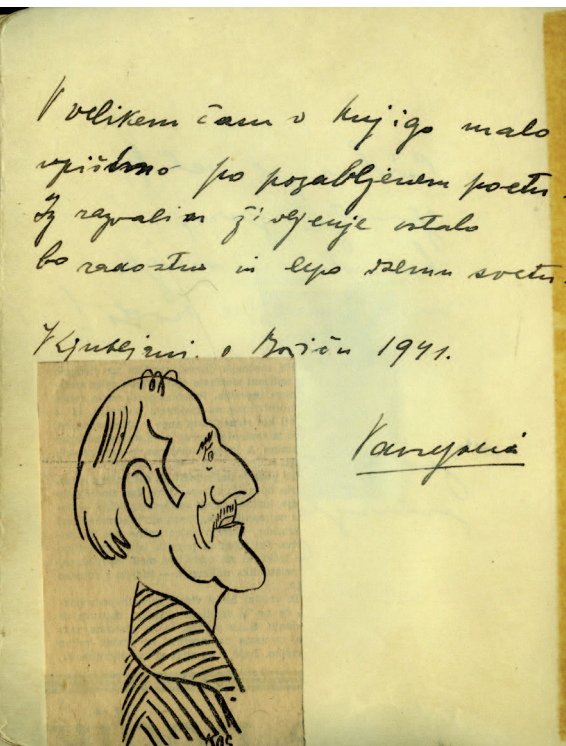 V velikem času v knjigo malo
vpišimo po pozabljenem poetu.
Iz razvalin življenje ostalo
bo radostno in lepo vsemu svetu.
V Ljubljani, o Božiču 1941.